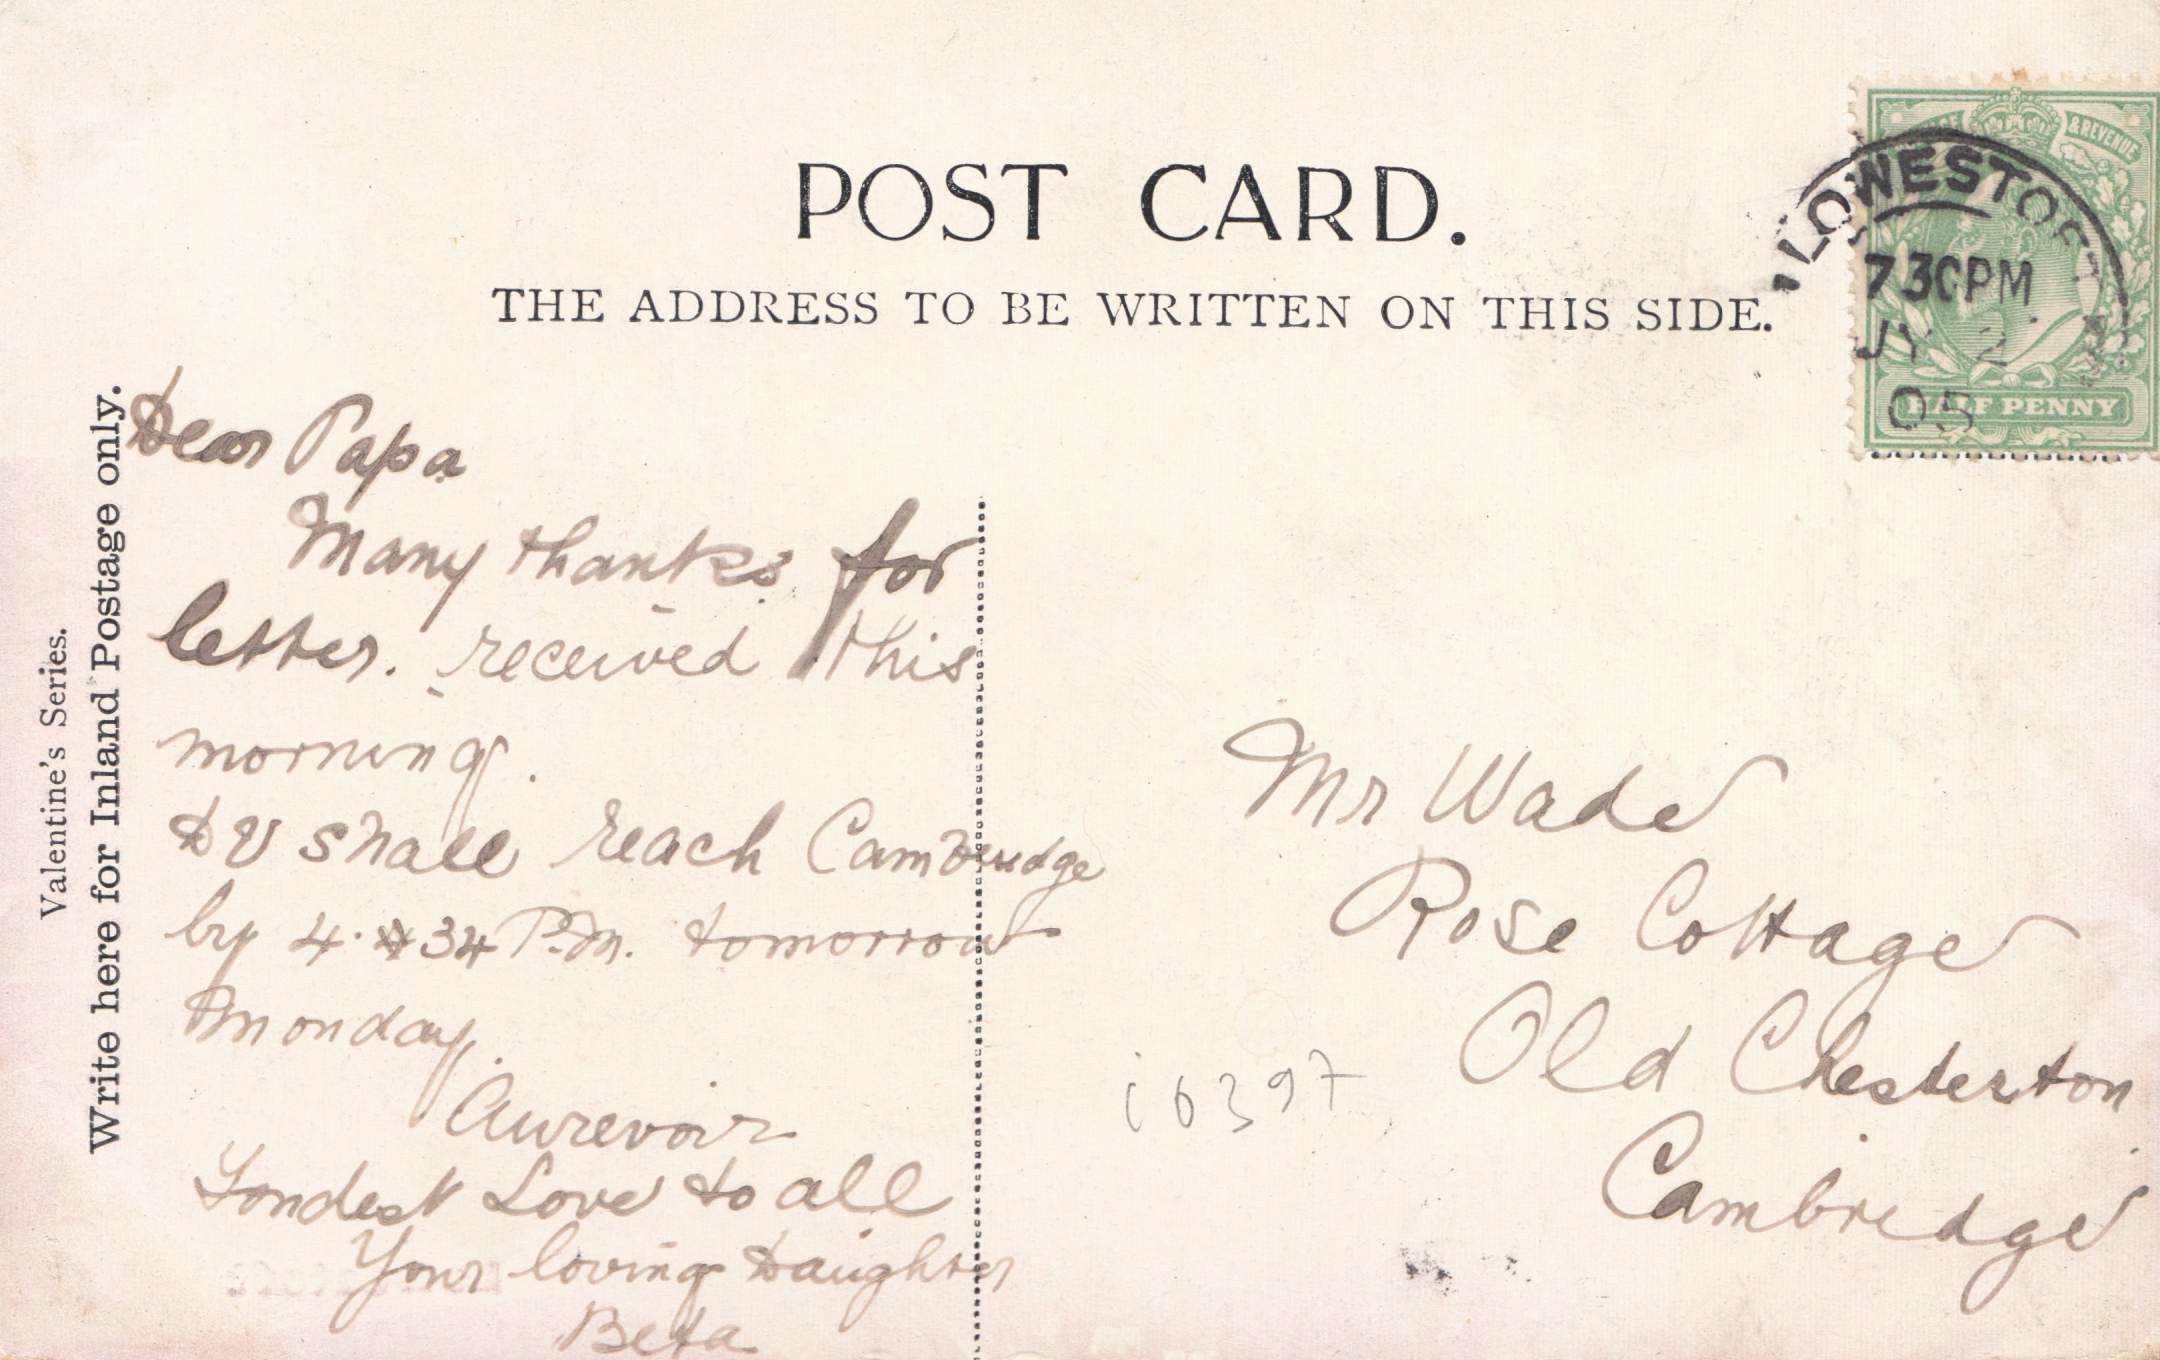 POST CARD.
THE ADDRESS TO BE WRITTEN ON THIS SIDE.
Valentine's Series.
Write here for Inland Postage only.
& REVENUE
HALF PENNY
LOWESTOFT
7 30PM
JY 2
05
Dear Papa
Many thanks for
letter. received this
morning.
DV shall reach Cambridge
by 4.34 P.M. tomorrow
Monday.
Aurevoir
Fondest Love to all
Your loving Daughter
Beta
Mr Wade
Rose Cottage
Old Chesterton
Cambridge
i6397